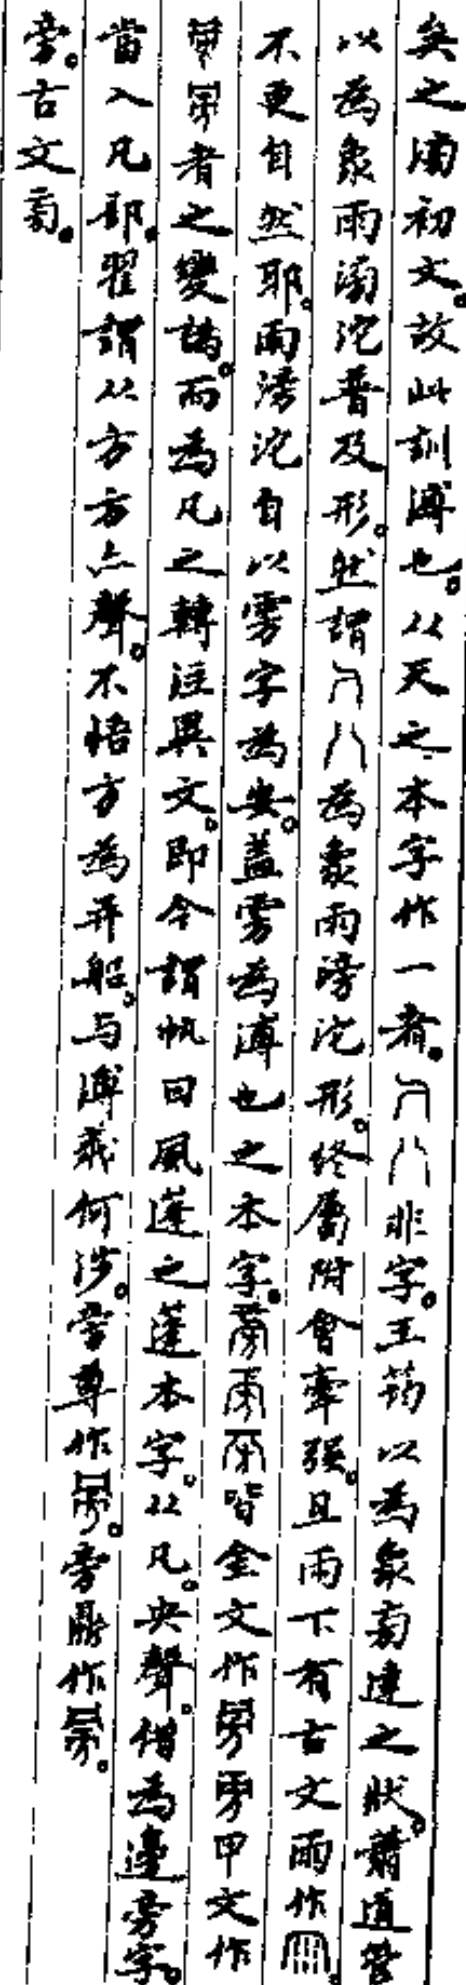 矣之滂初文。故此訓溥也。从天之本字作一者。八非字。王筠以為象旁達之狀。蕭道管
以為象雨滂沱普及形。然謂八為象雨滂沱形。終屬附會牽強。且雨下有古文雨作
不更自然耶。雨滂沱自以雱字為安。蓋雱為溥也之本字。皆金文作甲文作
者之變譌。而為凡之轉注異文。即今謂帆曰風蓬之蓬本字。从凡。央聲。借為邊旁字。
當入凡部。翟謂从方方亦聲。不悟方為并船。与溥義何涉。旁尊作。旁鼎作。
旁。古文。